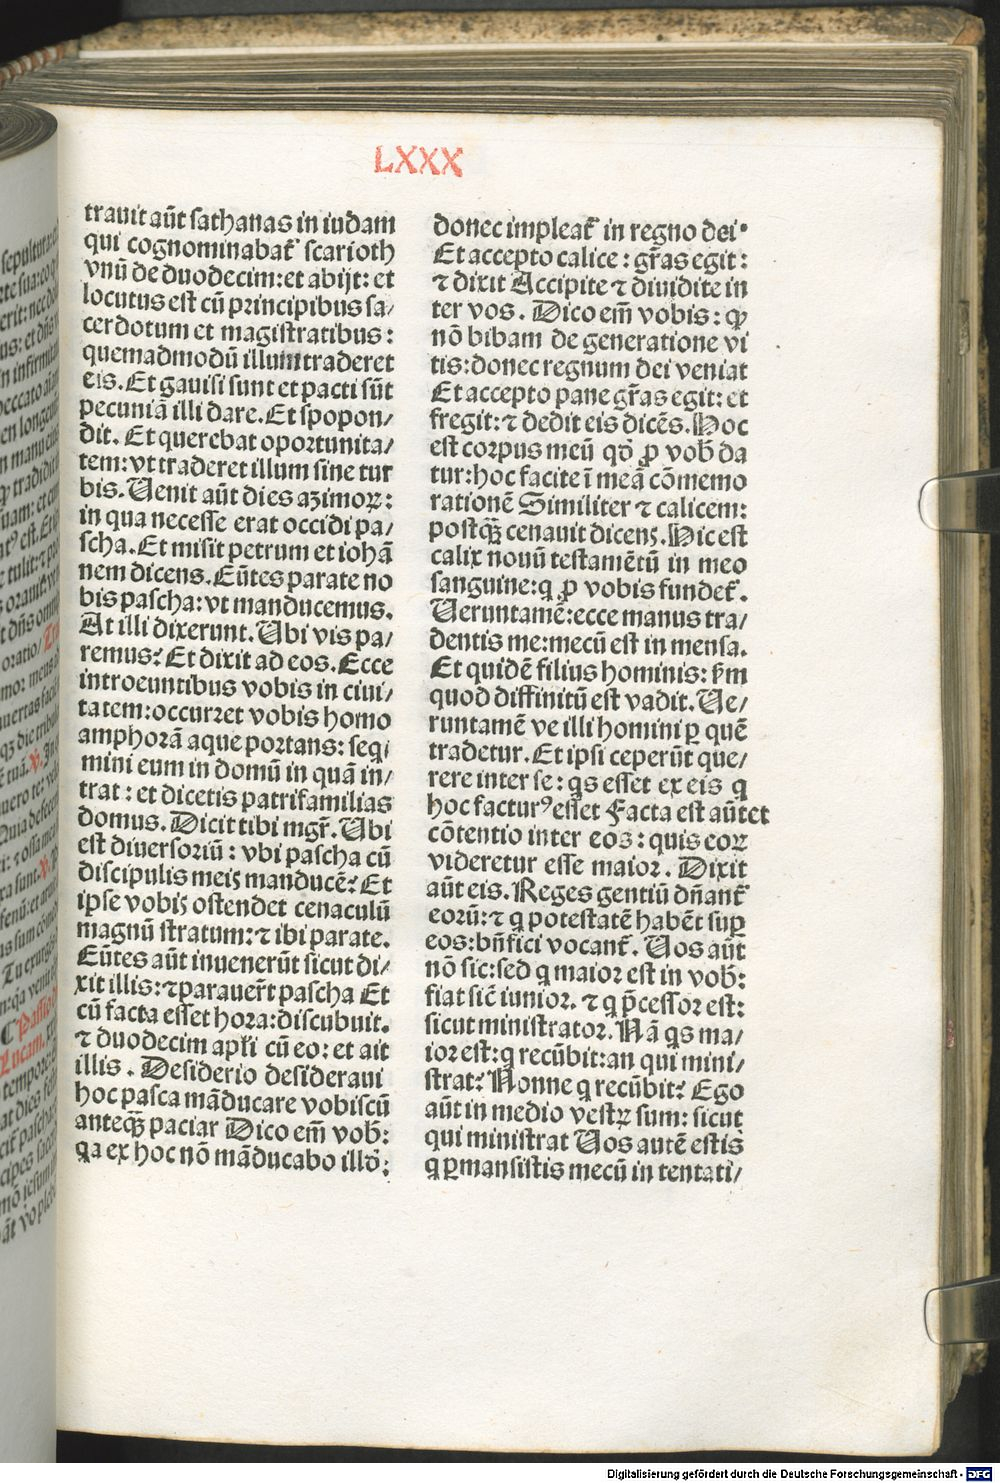 LXXX
trauit aūt sathanas in iudam
qui cognominabat᷑ scarioth
vnū de duodecim: et abijt: et
locutus est cū principibus sa/
cerdotum et magistratibus:
quemadmodū illum traderet
eis. Et gauisi sunt et pacti sūt
pecuniā illi dare. Et spopon/
dit. Et querebat oportunita/
tem: vt traderet illum sine tur
bis. Uenit aūt dies azimoꝝ:
in qua necesse erat occidi pa/
scha. Et misit petrum et iohā
nem dicens. Eūtes parate no
bis pascha: vt manducemus.
At illi dixerunt. Ubi vis pa/
remus? Et dixit ad eos. Ecce
introeuntibus vobis in ciui/
tatem: occurret vobis homo
amphorā aque portans: seq̄/
mini eum in domū in quā in/
trat: et dicetis patrifamilias
domus. Dicit tibi mgr̄. Ubi
est diuersoriū: vbi pascha cū
discipulis meis manducē? Et
ipse vobis ostendet cenaculū
magnū stratum: ⁊ ibi parate.
Eūtes aūt inuenerūt sicut di/
xit illis: ⁊ parauer̄t pascha Et
cū facta esset hora: discubuit.
⁊ duodecim apl̄i cū eo: et ait
illis. Desiderio desideraui
hoc pasca māducare vobiscū
anteq̄ꝫ paciar Dico em̄ vob̄:
qa ex hoc nō māducabo illd̄:
donec impleat᷑ in regno dei.
Et accepto calice: gr̄as egit:
⁊ dixit Accipite ⁊ diuidite in
ter vos. Dico em̄ vobis: ꝙ
nō bibam de generatione vi
tis: donec regnum dei veniat
Et accepto pane gr̄as egit: et
fregit: ⁊ dedit eis dicēs. Hoc
est corpus meū qd̄ ꝓ vob̄ da
tur: hoc facite ī meā cōmemo
rationē Similiter ⁊ calicem:
postq̄ꝫ cenauit dicens. Hic est
calix nouū testamētū in meo
sanguine: q ꝓ vobis fundet᷑.
Ueruntamē: ecce manus tra/
dentis me: mecū est in mensa.
Et quidē filius hominis: ẜm
quod diffinitū est vadit. Ue/
runtamē ve illi homini ꝑ quē
tradetur. Et ipsi ceperūt que/
rere inter se: qs esset ex eis q
hoc facturꝰ esset Facta est aūt et
cōtentio inter eos: quis eoꝝ
videretur esse maior. Dixit
aūt eis. Reges gentiū dn̄ant᷑
eorū: ⁊ q potestatē habēt suꝑ
eos: bn̄fici vocant᷑. Uos aūt
nō sic: sed q maior est in vob̄:
fiat sic̄ iunior. ⁊ q p̄cessor est:
sicut ministrator. Nā qs ma/
ior est: q recūbit: an qui mini/
strat? Nonne q recūbit? Ego
aūt in medio vestꝝ sum: sicut
qui ministrat Uos autē estis
q ꝑmansistis mecū in tentati/
Digitalisierung gefördert durch die Deutsche Forschungsgemeinschaft - DFG